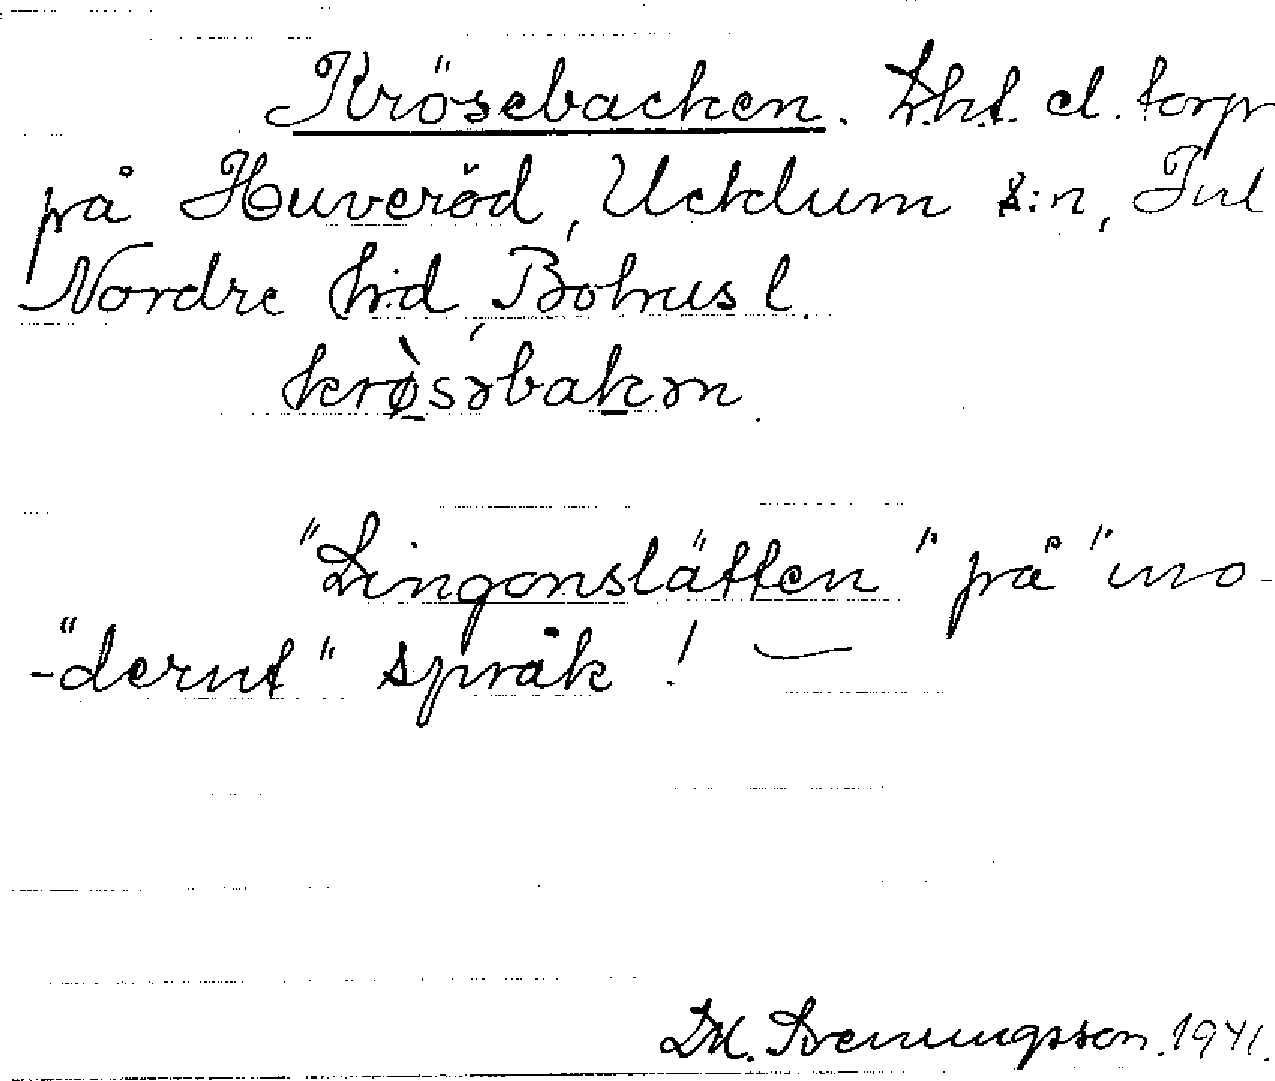 Krösebacken. Lht. el. torp
på Huveröd, Ucklum s:n, Inl
Nordre hd, Bohus l.
krø̀səbakən.
"Lingonslätten" på "mo-
-"dernt" språk! —
D.H. Svenningsson. 1941.